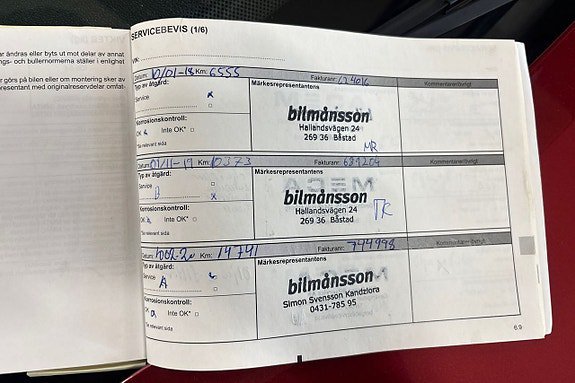 ar ändras eller byts ut mot delar av annat
ngs- och bullernormerna ställer i enlighet
r görs på bilen eller om montering sker av
presentant med originalreservdelar omfat-
SERVICEBEVIS (1/6)
VIN:
Datum: 10/01-18 Km: 6555 Fakturanr: 124016 Kommentarer/övrigt
Typ av åtgärd: Märkesrepresentantens
Service x
bilmånsson
Hallandsvägen 24
269 36 Båstad
MR
Korrosionskontroll:
OK Inte OK*
*Se relevant sida
Datum: 01/11-19 Km: 10373 Fakturanr: 681204 Kommentarer/övrigt
Typ av åtgärd: Märkesrepresentantens
Service
x
bilmånsson
Hallandsvägen 24
269 36 Båstad
Korrosionskontroll:
OK Inte OK*
*Se relevant sida
Datum: Km: 14741 Fakturanr: 744998 Kommentarer/övrigt
Typ av åtgärd: Märkesrepresentantens
Service
A
bilmånsson
Simon Svensson Kandzlora
0431-785 95
Korrosionskontroll:
OK Inte OK*
*Se relevant sida
6.9